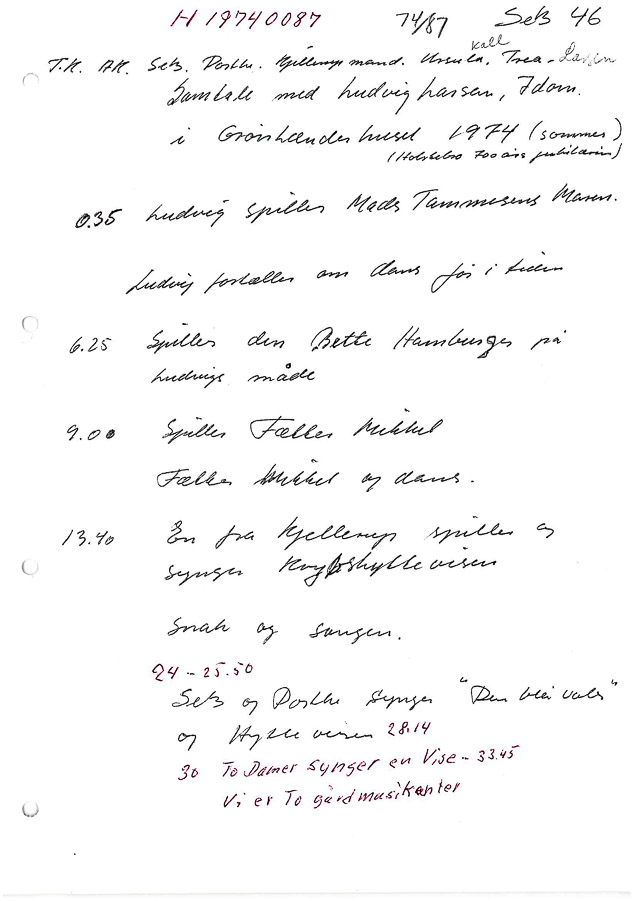 H 19740087 74/87 SeB 46
Kall
T.K. AK. SeB. Dorthe. Kjellerup mand. Ursula, Trea-Larsen
Samtale med Ludvig Lassen, Idom.
i Grønlænderhuset 1974 (sommer)
(Holstebro 700 års jubilæum)
0.35 Ludvig spiller Mads Tammesens Maren.
Ludvig fortæller om dans før i tiden
6.25 Spiller den Bette Hamburger på
Ludvigs måde
9.00 Spiller Fælles Mikkel
Fælles Mikkel og dans.
13.40 En fra Kjellerup spiller og
synger
Snak og sangen.
24-25.50
SeB og Dorthe synger "Den blå vals"
og Hyttevisen 28.14
30 To Damer synger en Vise - 33.45
Vi er To gårdmusikanter